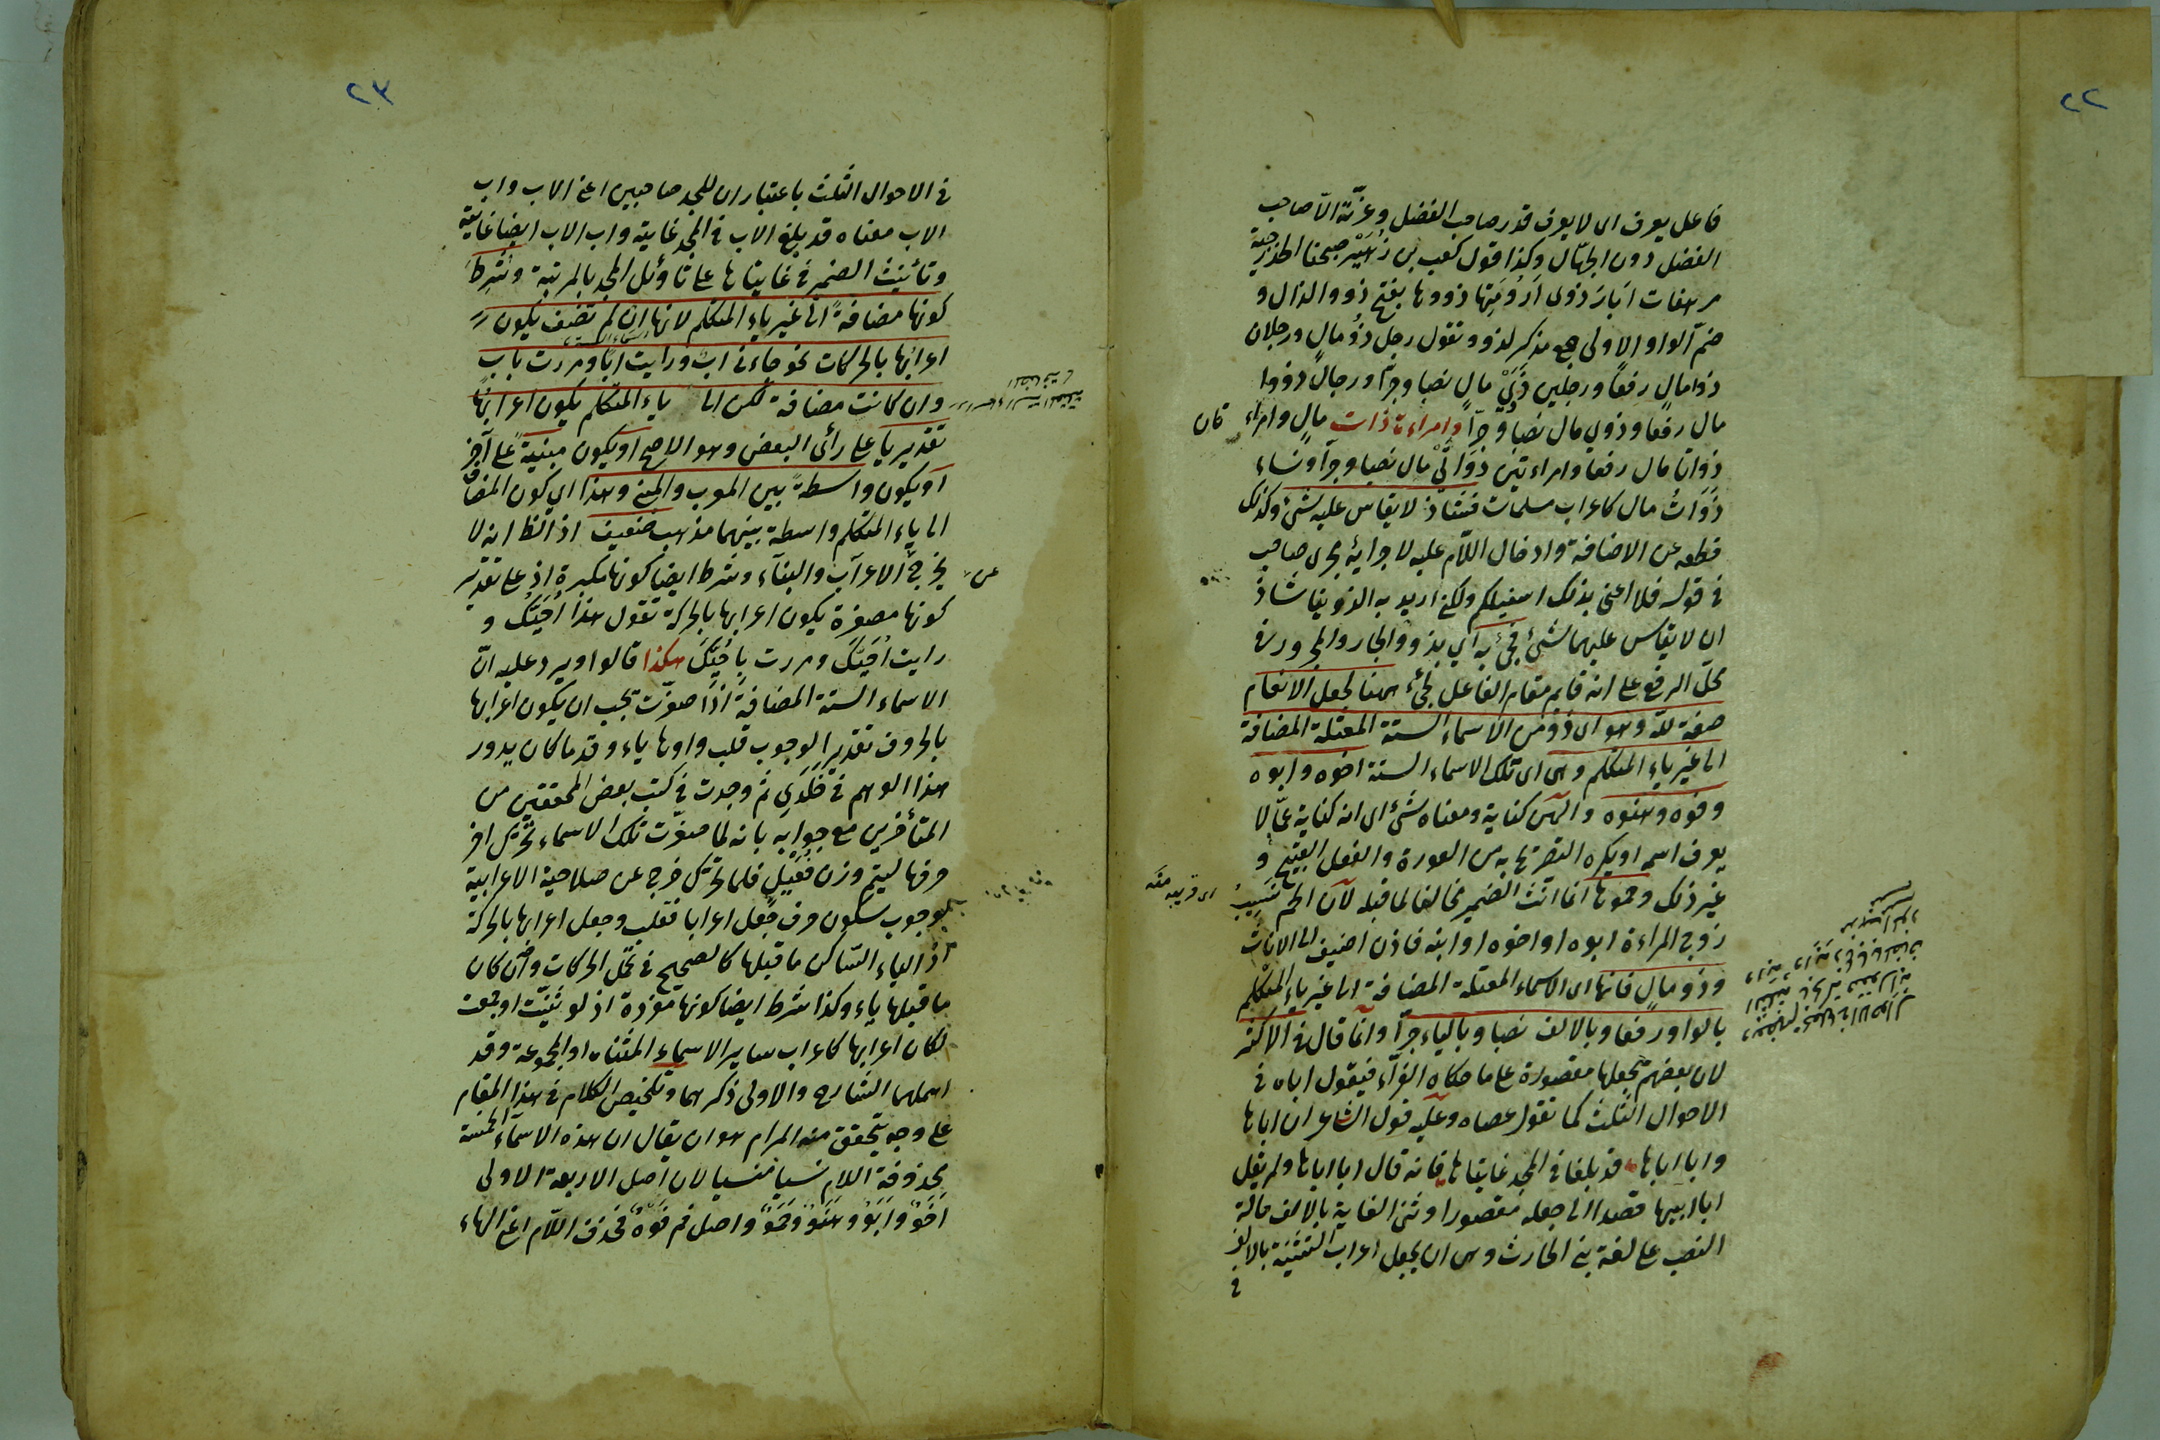 ٢٢
فاعل يعرف اى لا يعرف قدر صاحب الفضل وعزّته الاّ صاحب
الفضل دون الجهّال وكذا قول كعب بن زُهَيْر صبحنا الخزرجية
مرهفات اَبَارَ ذوى اَرُوْمَتِها ذووها بفتح ذوو الذال و
ضمّ الواو الاولى جمع مذكر لذو وتقول رجل ذُو مالٍ ورجلان
ذوا مالٍ رفعًا ورجلين ذَوَىْ مالٍ نصبا وجرّا ورجال ذووا
مال رفعا وذوي مال نصبا وجرّا وامراءة ذات مالٍ وامراء تان
ذواتا مال رفعا وامراءتين ذَوَاتَىْ مال نصبا وجرا ونساء
ذَوَاتُ مال كاعراب مسلمات فشاذ لا يقاس عليه شئ وكذلك
قطعه عن الاضافة وادخال اللّام عليه لاجرائه مجرى صاحب
فى قوله فلا اعنى بذلك اسفليكم ولكنى اريد به الذوينا شاذّ
ان لا يقاس عليهما شئ فجئ به اي بذو والجار والمجرور فى
محلّ الرفع على انه قايم مقام الفاعل لجئ ههنا لجعل الانعام
صفة للّه وهو اى ذو من الاسماء الستة المعتلة المضافة
الى غير ياء المتكلم وهى اى تلك الاسماء الستة اخوه وابوه
وفوه وهنوه والهن كناية ومعناه شئ اى انه كناية عمّا لا
يعرف اسمه او يكره التصريح به من العورة والفعل القبيح و
غير ذلك وحموها انما انّث الضمير مخالفا لما قبله لان الحم نسيبُ
اى قريبه منه
زوج المراءة ابوه او اخوه او ابنه فاذن اضيف الى الاناث
وذو مالٍ فانها اى الاسماء المعتلة المضافة الى غير ياء المتكلم
بالواو رفعا وبالالف نصبا وبالياء جرّا وانّما قال فى الاكثر
لان بعضهم يجعلها مقصورة على ما حكاه الفرّاء فيقول اباه فى
الاحوال الثلث كما تقول عصاه وعليه قول الشاعر ان اباها
وابا اباها قد بلغا فى المجد غايتاها فانه قال ابا اباها ولم يقل
ابا ابيها قصدا الى جعله مقصورا وثنى الغاية بالالف حالة
النصب على لغة بنى الحارث وهى ان يجعل اعراب التثنية بالالف
فى
٢٣
فى الاحوال الثلث باعتبار ان للمجد صاحبين اعنى الاب واب
الاب معناه قد بلغ الاب فى المجد غايته واب الاب ايضا غايته
وتأنيث الضمير فى غايتاها على تاويل المجد بالمرتبة وشرط
كونها مضافةً الى غير ياء المتكلم لانها ان لم تضف يكون
اعرابها بالحركات نحو جاءنى ابٌ ورايت ابًا ومررت باب
وان كانت مضافة لكن الى ياء المتكلم يكون اعرابها
تقديريا على رأى البعض وهو الاصح او يكون مبنيةً على آخر
او يكون واسطةً بين المعرب والمبنى وهذا اي كون المضاف
الى ياء المتكلم واسطة بينهما مذهب ضعيف اذ الظ انه لا
يخرج عن الاعراب والبناء وشرط ايضا كونها مكبرة اذ على تقدير
كونها مصغرة يكون اعرابها بالحركة تقول هذا اُخَيُّكَ و
رايت اُخَيَّكَ ومررت بِاُخَيِّكَ هكذا قالوا ويرد عليه انّ
الاسماء الستة المضافة اذا صغّرت يجب ان يكون اعرابها
بالحروف تقديرا لوجوب قلب واوها ياء وقد ما كان يدور
هذا الوهم فى خَلَدِي ثم وجدت فى كتب بعض المحققين من
المتأخرين مع جوابه بانه لما صغّرت تلك الاسماء تحرّك اخر
حرفها ليتم وزن فُعَيْلٍ فلما تحرّك خرج عن صلاحية الاعرابية
لوجوب سكون حرف جعل اعرابا فقلب وجعل اعرابها بالحركة
اذ الياء الساكن ما قبلها كالصحيح فى تحمّل الحركات وان كان
ما قبلها ياء وكذا شرط ايضا كونها مفردة اذ لو ثنيّت او جمعت
لكان اعرابها كاعراب ساير الاسماء المثناه او المجموعة وقد
اهملهما الشارح والاولى ذكرهما وتلخيص الكلام فى هذا المقام
على وجه يتحقق منه المرام هو ان يقال ان هذه الاسماء الخمسة
محذوفة اللام نسيا منسيا لان اصل الاربعة الاولى
اَخَوٌ واَبَوٌ وهَنَوٌ وحَمَوٌ واصل فم فَوَهٌ فحذف اللّام اعنى الهاء